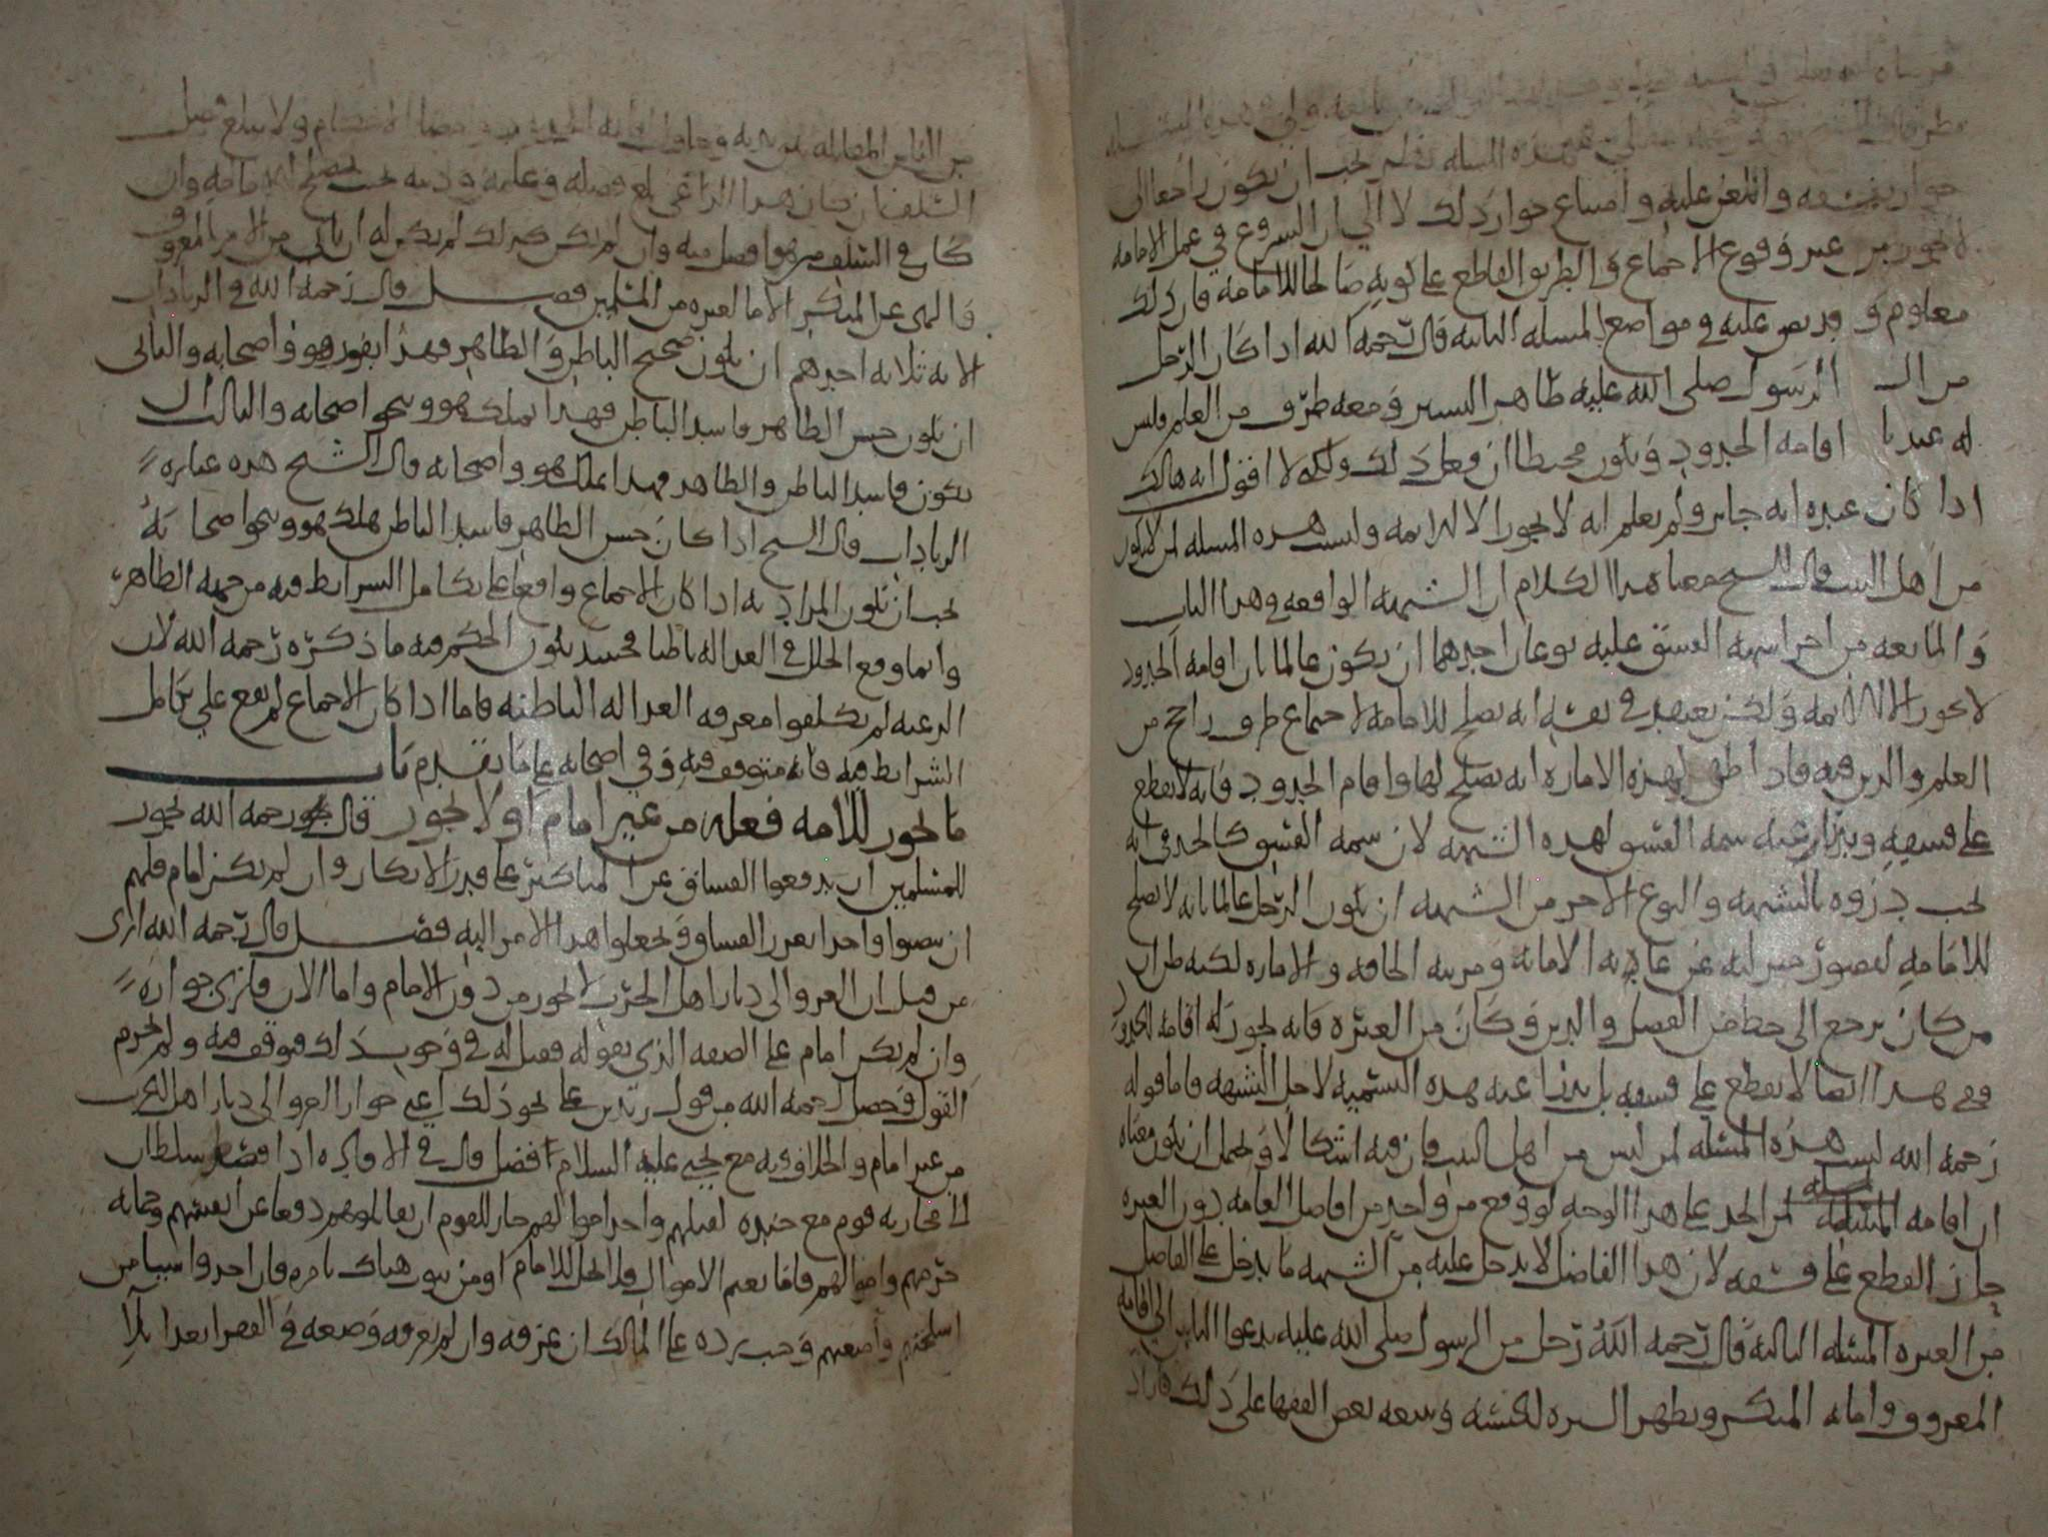 جواز بفسقه واللعن عليه وامتناع جواز ذلك لا الى ان الشروع في عمل الامامه
لا يجوز من غير وقوع الاجماع والطريق القاطع على كونه صالحا للامامه فان ذلك
معلوم وقد نص عليه في مواضع المسله الثانيه قال رحمه الله اذا كان الرجل
من ال الرسول صلى الله عليه ظاهر الستر ومعه طرف من العلم وليس
له عندنا اقامه الحدود ويكون مخطئا ان فعل ذلك ولكن لا اقول انه هالك
اذا كان عنده انه جايز ولم يعلم انه لا يجوز الا للايمه وليست هذه المسله لمن لا يكون
من اهل البيت قال الشيخ معنا هذا الكلام ان الشبهه الواقعه في هذا الباب
والمانعه من اجرا سمه الفسق عليه نوعان احدهما ان يكون عالما بان اقامه الحدود
لا يجوز الا للايمه ولكن يعتقد في نفسه انه يصلح للامامه لاجتماع طرف راجح من
العلم والدين فيه فاذا ظن بهذه الاماره انه يصلح لها واقام الحدود فانه لا يقطع
على فسقه ويزال عنه سمه الفسق لهذه الشبهه لان سمه الفسق كالحد في انه
يجب دروه بالشبهه والنوع الاخر من الشبهه ان يكون الرجل عالما بانه لا يصلح
للامامه لقصور منزلته عن عادته الامانه ومرتبه الخلافه والاماره لكنه ظن ان
من كان يرجع الى حظ من الفضل والدين وكان من العتره فانه يجوز له اقامه الحدود
ففي هذا ايضا لا يقطع على فسقه بل يدرا عنه بهذه التسميه لاجل الشبهه فاما قوله
رحمه الله ليست هذه المسئله لمن ليس من اهل البيت فان فيه اشكالا ويحتمل ان يكون معناه
ان اقامه المسئله الحد على هذا الوجه لو وقع من واحد من افاضل العامه دون العتره
جاز القطع على فسقه لان هذا الفاضل لا يدخل عليه من الشبهه ما يدخل على الفاضل
من العتره المسئله الثالثه قال رحمه الله رجل من ال الرسول صلى الله عليه يدعوا الناس الى اقامه
المعروف واماته المنكر ويظهر السره لنفسه وتبعه بعض الفقها على ذلك فاراد
من الناس المقاتله بين يديه وحاول اقامه الحدود وامضا الاحكام ولا يبلغ فضل
السلف فان كان هذا الداعي بلغ فضله وعلمه ودينه بحيث يصلح للامامه وان
كان في السلف من هو افضل منه وان لم يكن كذلك لم يكن له ان ياتي من الامر بالمعروف
والنهي عن المنكر الا ما لغيره من المسلمين فصل قال رحمه الله في الزيادات
الايمه ثلاثه احدهم ان يكون صحيح الباطن والظاهر فهذا يفوز هو واصحابه والثاني
ان يكون حسن الظاهر فاسد الباطن فهذا يهلك هو وينجو اصحابه والثالث ان
يكون فاسد الباطن والظاهر فهذا يهلك هو واصحابه قال الشيخ هذه عباره
الزيادات قال الشيخ اذا كان حسن الظاهر فاسد الباطن هلك هو وينجو اصحابه
يجب ان يكون المراد به اذا كان الاجماع واقعا على تكامل الشرايط فيه من جهه الظاهر
وانما وقع الخلل في العداله باطنا فحينئذ يكون الحكم فيه ما ذكره رحمه الله لان
الرعيه لم يكلفوا معرفه العداله الباطنه فاما اذا كان الاجماع لم يقع على تكامل
الشرايط فيه فانه متوقف فيه وفي اصحابه على ما تقدم باب
ما يجوز للامه فعله من غير امام او لا يجوز قال رحمه الله يجوز
للمسلمين ان يدفعوا الفساق عن المناكير على قدر الامكان وان لم يكن امام فلهم
ان ينصبوا واحدا يعزر الفساق ويجعلوا هذا الامر اليه فصل قال رحمه الله ارى
من قبل ان الغزو الى ديار اهل الحرب لا يجوز من دون الامام واما الان فارى جوازه
وان لم يكن امام على الصفه الذي يقوله فقيل له في وجوب ذلك فتوقف فيه ولم يجزم
القول وحصل رحمه الله من قول زيد بن على نحو ذلك اعني جواز الغزو الى ديار اهل الحرب
من غير امام والخلاف فيه مع يحيى عليه السلام افضل قال في الافاده اذا قصد سلطان
الى محاربه قوم مع جنده لقتلهم واخذ اموالهم جاز للقوم ان يقاتلوهم دفعا عن انفسهم وحمايه
حرمهم واموالهم فاما تغنم الاموال فلا يحل الا للامام او من يكون هناك بامره فان اخذوا شيا من
اسلحتهم وامتعتهم وجب رده على المالك ان عرفه وان لم يعرفه وضعه في الفقرا بعد الاياس